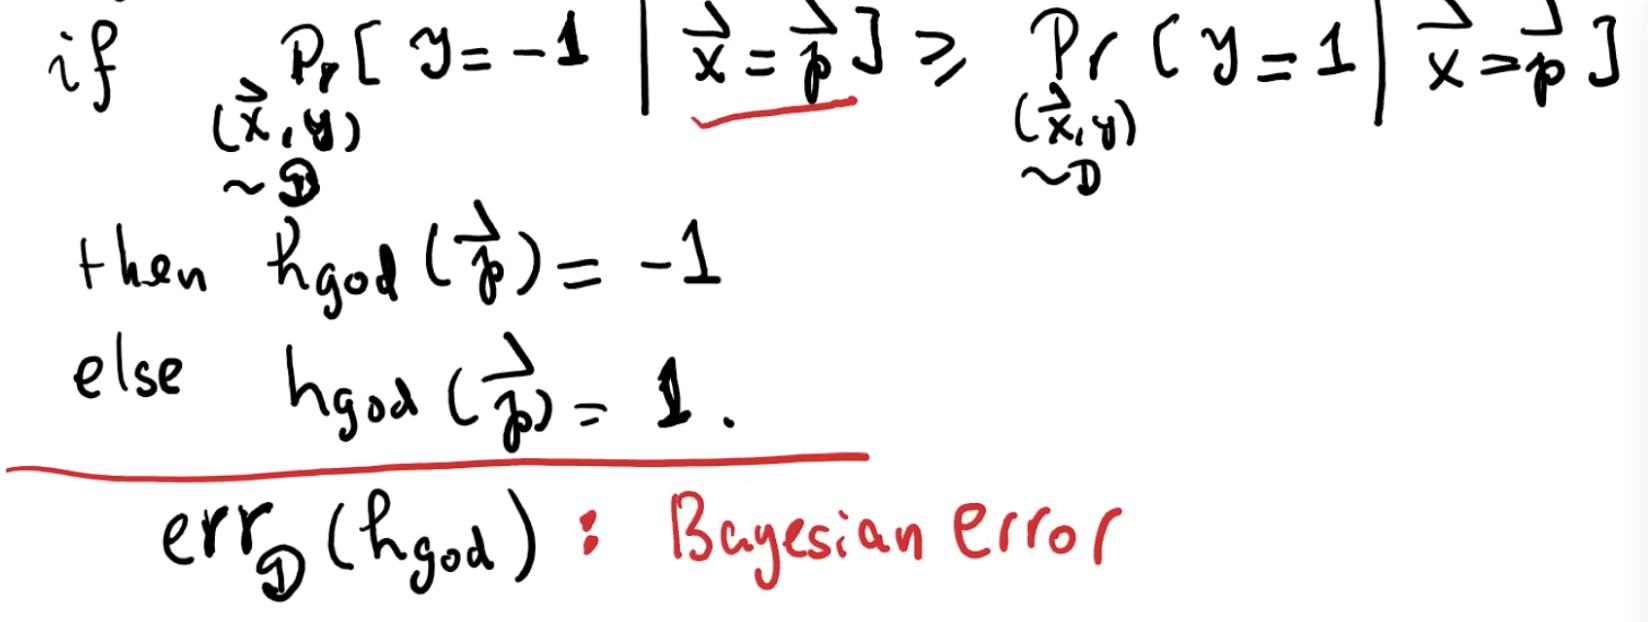 if Pr[ y = -1 | x⃗ = p⃗ ] ⩾ Pr [ y = 1 | x⃗ = p⃗ ]
(x⃗, y) (x⃗, y)
~ D ~ D
then h_god (p⃗) = -1
else h_god (p⃗) = 1.
err_D (h_god) : Bayesian error